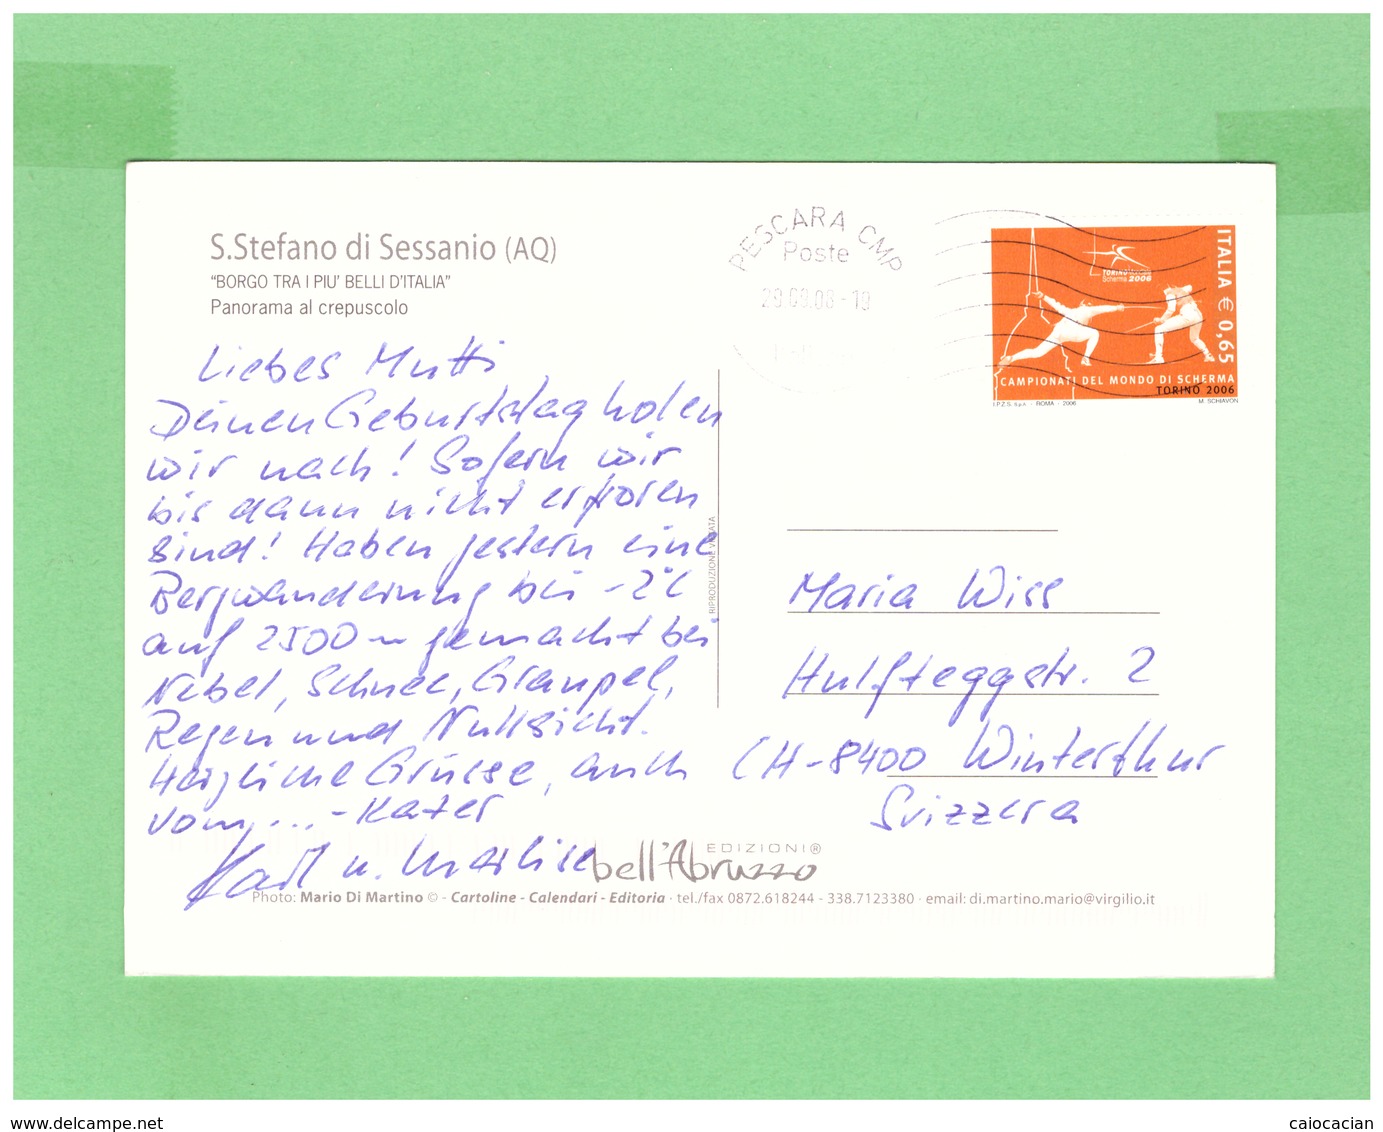 S.Stefano di Sessanio (AQ)
"BORGO TRA I PIU' BELLI D'ITALIA"
Panorama al crepuscolo
Liebes Mutti
Deinen Geburtstag holen
wir nach! Sofern wir
bis dann nicht erfroren
sind! Haben gestern eine
Bergwanderung bei -2°C
auf 2500 m gemacht bei
Nebel, Schnee, Graupel,
Regen und Nullsicht.
Herzliche Grüsse, auch
vom ...-Kater
Karl u. Marlise
PESCARA CMP
Poste
29.09.08-19
ITALIA € 0,65
TORINO
Scherma 2006
CAMPIONATI DEL MONDO DI SCHERMA
TORINO 2006
I.P.Z.S. S.p.A. - ROMA - 2006
M. SCHIAVON
RIPRODUZIONE VIETATA
Maria Wiss
Hulfteggstr. 2
CH-8400 Winterthur
Svizzera
EDIZIONI®
bell'Abruzzo
Photo: Mario Di Martino © - Cartoline - Calendari - Editoria · tel./fax 0872.618244 - 338.7123380 · email: di.martino.mario@virgilio.it
www.delcampe.net
caiocacian